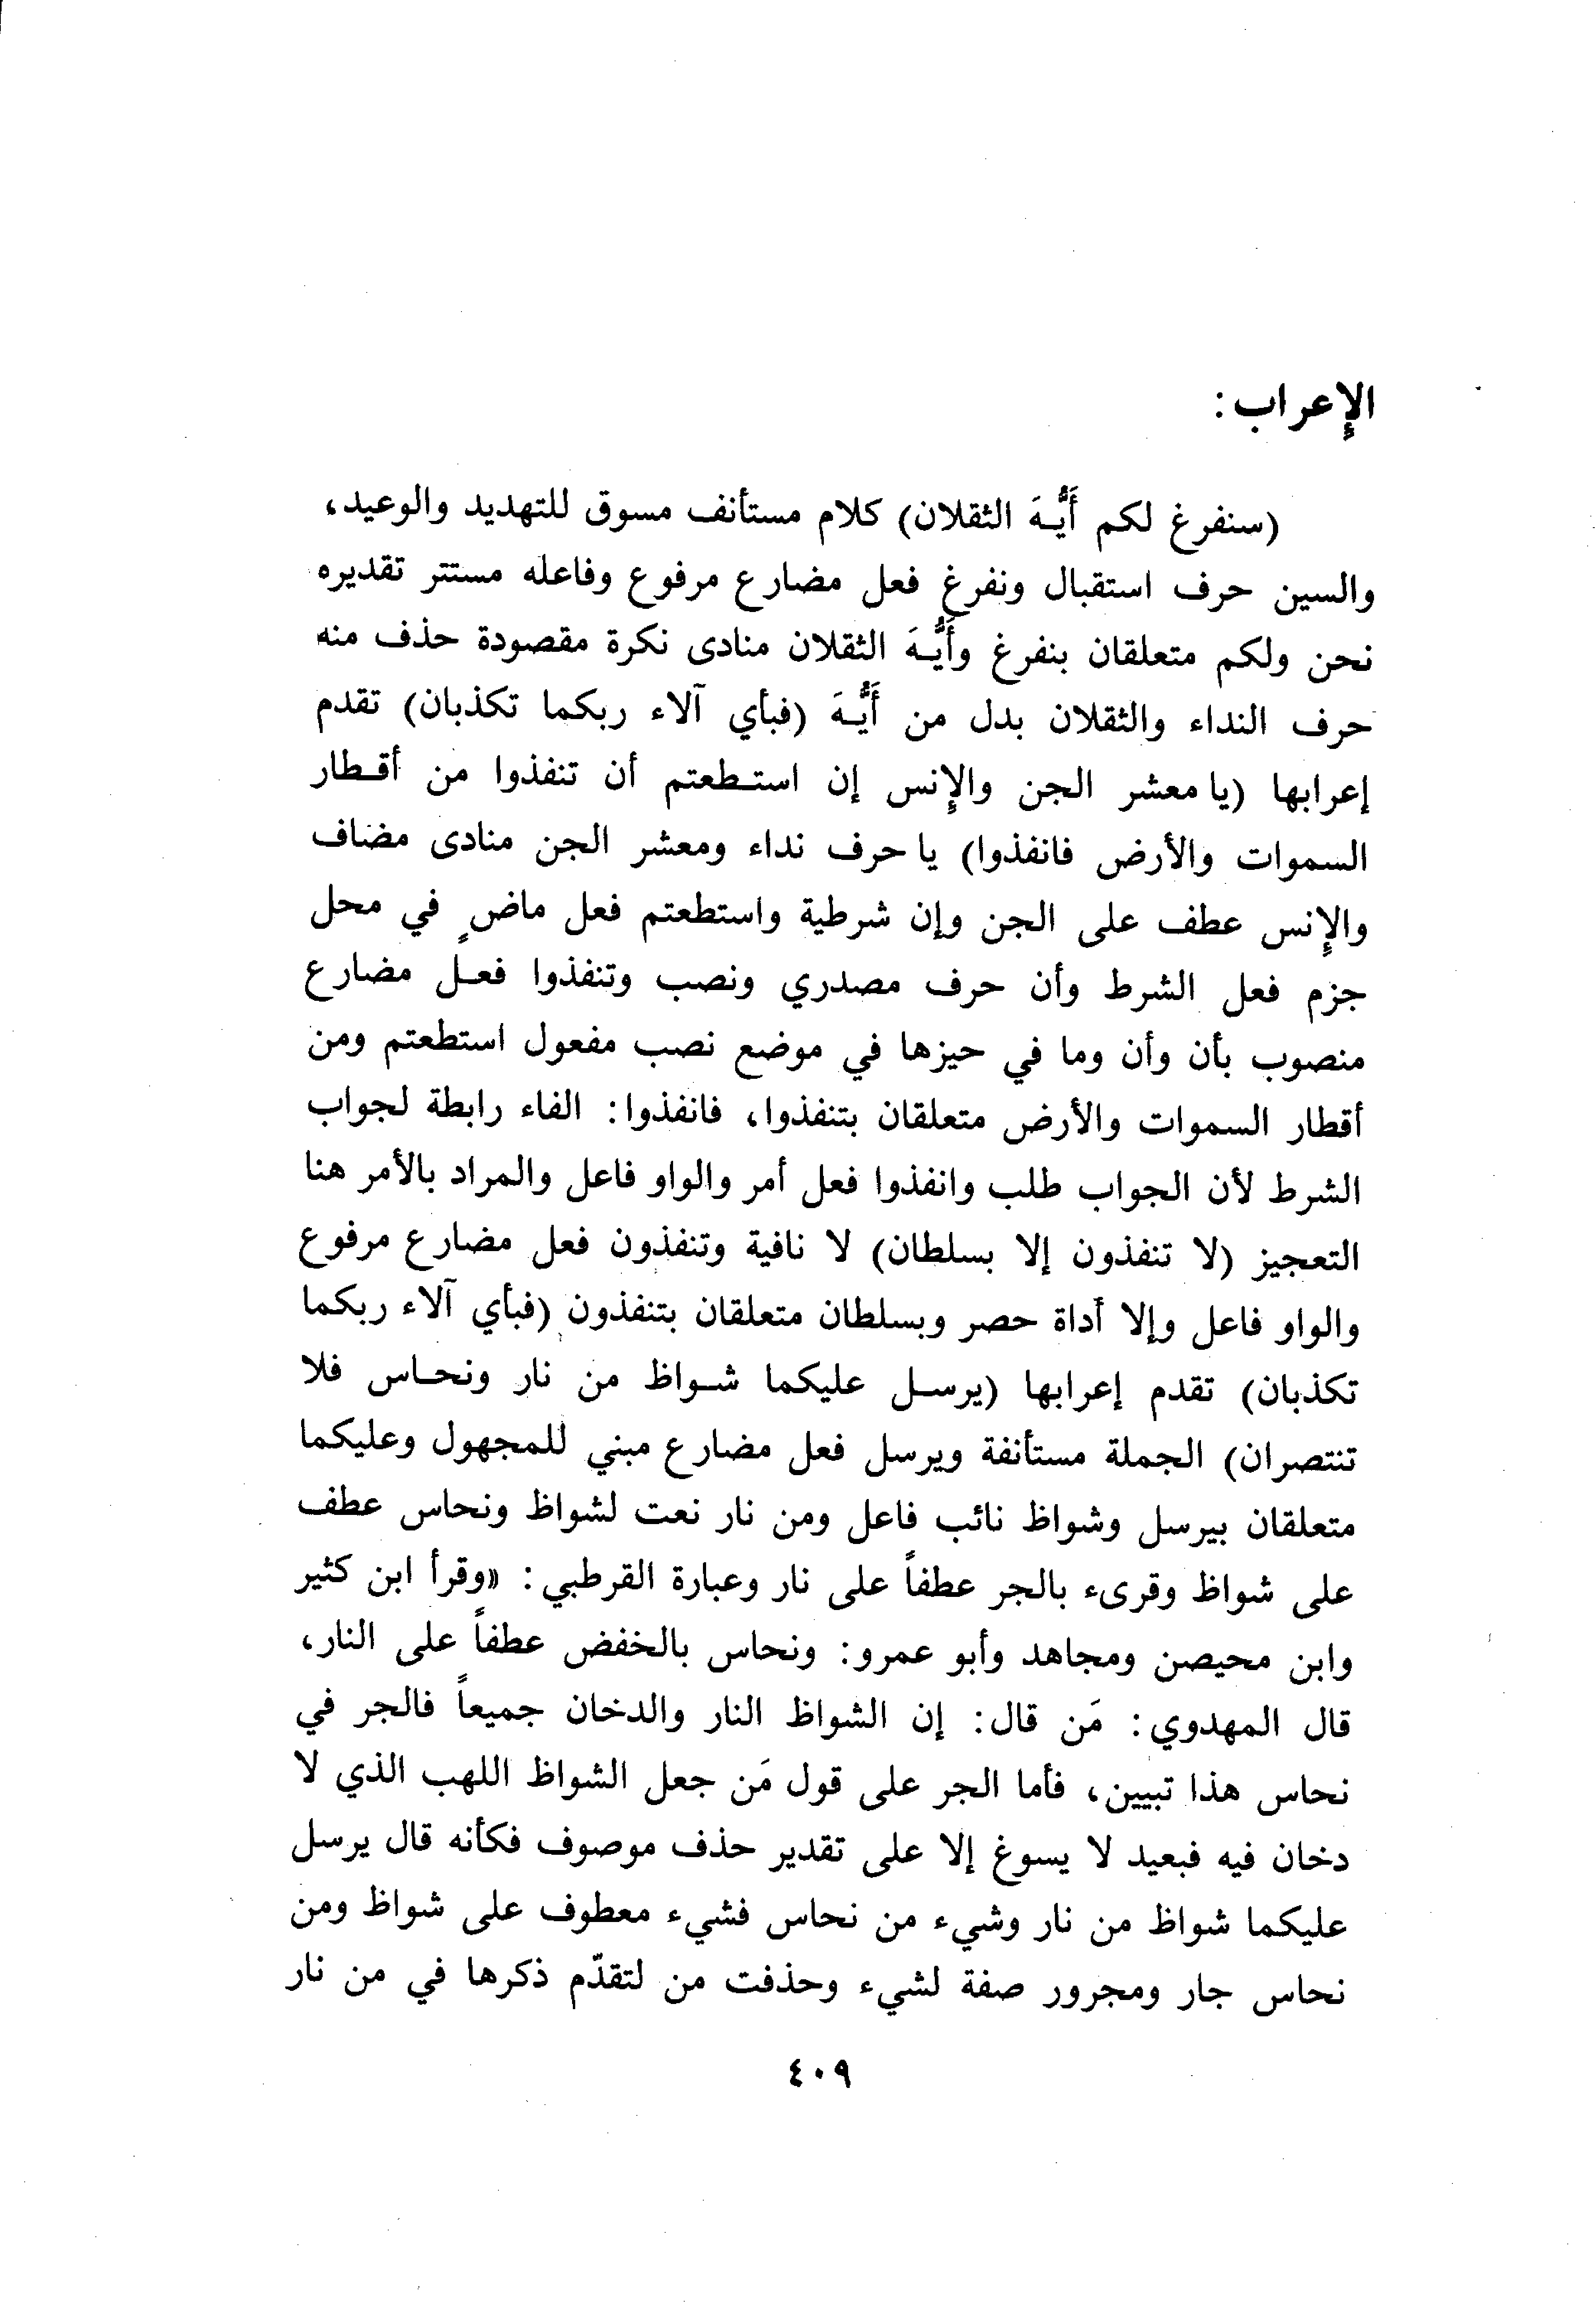 الإعراب :
(سنفرغ لكم أَيُّهَ الثقلان) كلام مستأنف مسوق للتهديد والوعيد،
والسين حرف استقبال ونفرغ فعل مضارع مرفوع وفاعله مستتر تقديره
نحن ولكم متعلقان بنفرغ وأَيُّهَ الثقلان منادى نكرة مقصودة حذف منه
حرف النداء والثقلان بدل من أَيُّهَ (فبأي آلاء ربكما تكذبان) تقدم
إعرابها (يا معشر الجن والإنس إن استطعتم أن تنفذوا من أقطار
السموات والأرض فانفذوا) يا حرف نداء ومعشر الجن منادى مضاف
والإنس عطف على الجن وإن شرطية واستطعتم فعل ماضٍ في محل
جزم فعل الشرط وأن حرف مصدري ونصب وتنفذوا فعل مضارع
منصوب بأن وأن وما في حيزها في موضع نصب مفعول استطعتم ومن
أقطار السموات والأرض متعلقان بتنفذوا، فانفذوا: الفاء رابطة لجواب
الشرط لأن الجواب طلب وانفذوا فعل أمر والواو فاعل والمراد بالأمر هنا
التعجيز (لا تنفذون إلا بسلطان) لا نافية وتنفذون فعل مضارع مرفوع
والواو فاعل وإلا أداة حصر وبسلطان متعلقان بتنفذون (فبأي آلاء ربكما
تكذبان) تقدم إعرابها (يرسل عليكما شواظ من نار ونحاس فلا
تنتصران) الجملة مستأنفة ويرسل فعل مضارع مبني للمجهول وعليكما
متعلقان بيرسل وشواظ نائب فاعل ومن نار نعت لشواظ ونحاس عطف
على شواظ وقرىء بالجر عطفاً على نار وعبارة القرطبي: «وقرأ ابن كثير
وابن محيصن ومجاهد وأبو عمرو: ونحاس بالخفض عطفاً على النار،
قال المهدوي: مَن قال: إن الشواظ النار والدخان جميعاً فالجر في
نحاس هذا تبيين، فأما الجر على قول مَن جعل الشواظ اللهب الذي لا
دخان فيه فبعيد لا يسوغ إلا على تقدير حذف موصوف فكأنه قال يرسل
عليكما شواظ من نار وشيء من نحاس فشيء معطوف على شواظ ومن
نحاس جار ومجرور صفة لشيء وحذفت من لتقدّم ذكرها في من نار
٤٠٩